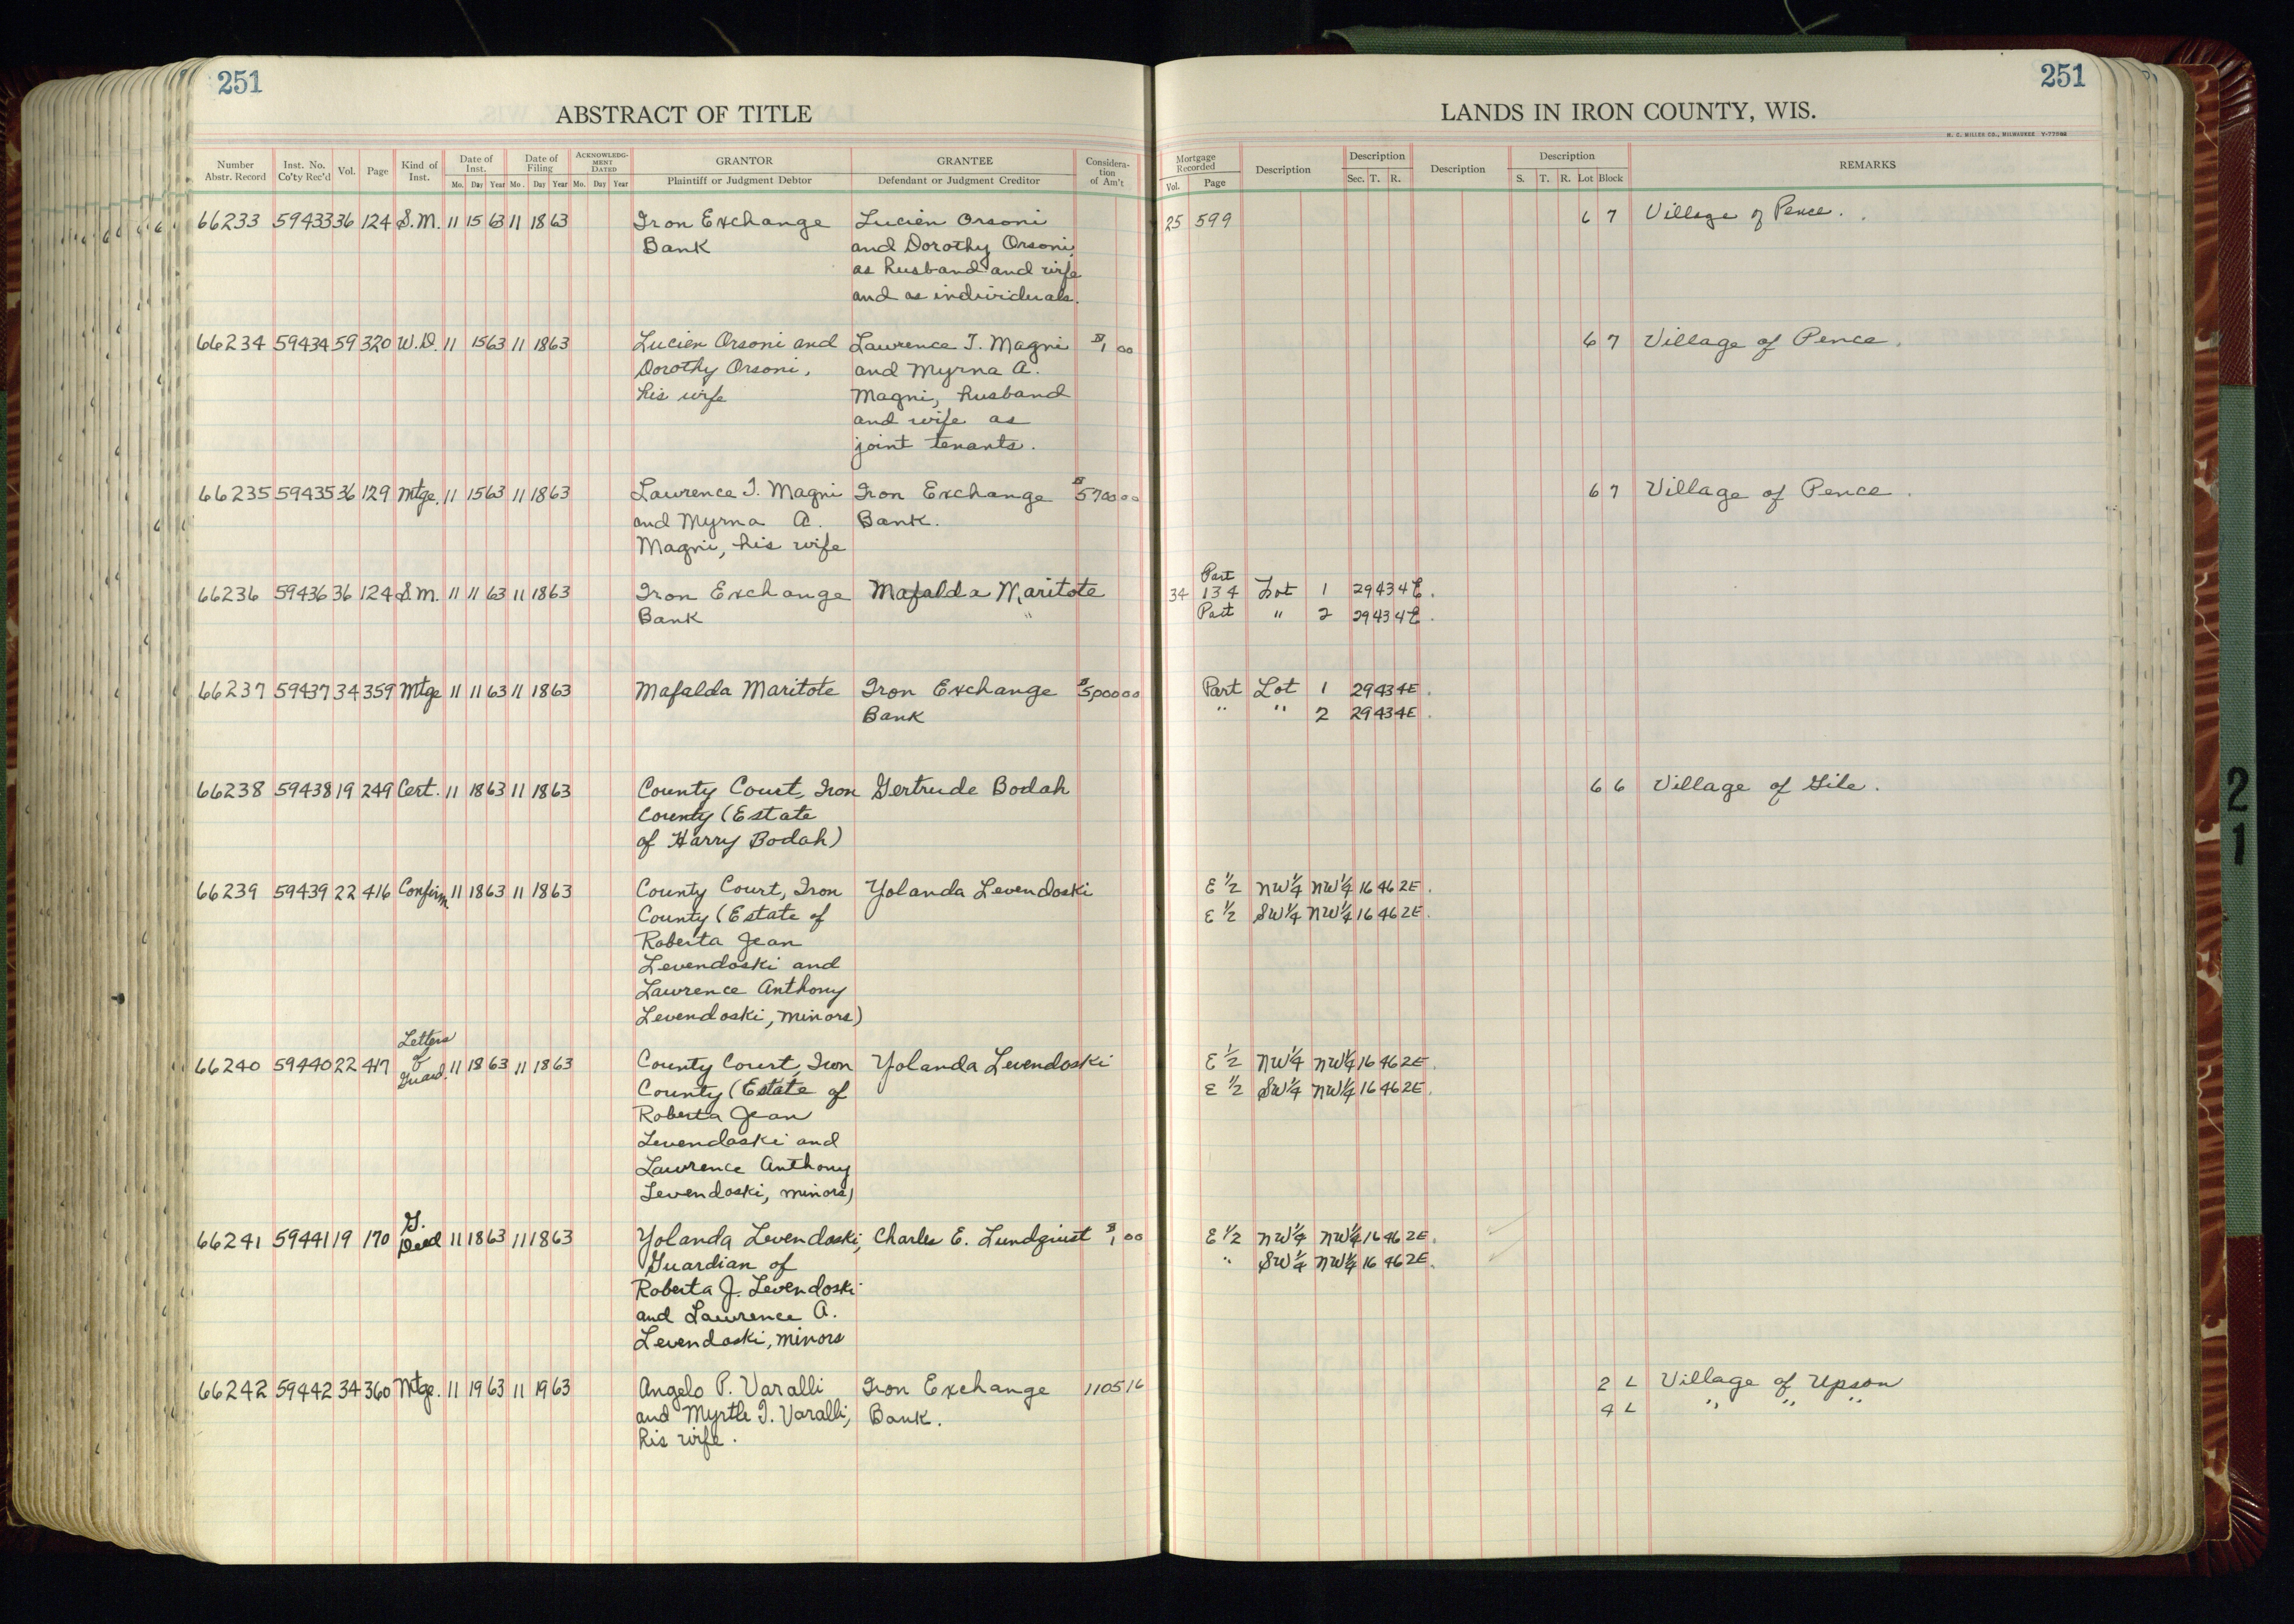 251
ABSTRACT OF TITLE
251
LANDS IN IRON COUNTY, WIS.
H. C. MILLER CO., MILWAUKEE
Number Abstr. Record Inst. No. Co'ty Rec'd Vol. Page Kind of Inst. Date of Inst. Mo. Day Year Date of Filing Mo. Day Year ACKNOWLEDGMENT DATED Mo. Day Year GRANTOR Plaintiff or Judgment Debtor GRANTEE Defendant or Judgment Creditor Consideration of Am't Mortgage Recorded Vol. Page Description Description Sec. T. R. Description Description S. T. R. Lot Block REMARKS
66233 59433 36 124 S.M. 11 15 63 11 18 63 Iron Exchange Lucien Orsoni 25 599 6 7 Village of Pence.
Bank and Dorothy Orsoni,
as husband and wife
and as individuals.
66234 59434 59 320 W.D. 11 15 63 11 18 63 Lucien Orsoni and Lawrence J. Magni $1 00 6 7 Village of Pence.
Dorothy Orsoni, and Myrna A.
his wife Magni, husband
and wife as
joint tenants.
66235 59435 36 129 Mtge. 11 15 63 11 18 63 Lawrence J. Magni Iron Exchange $5700 00 6 7 Village of Pence.
and Myrna A. Bank.
Magni, his wife
Part
66236 59436 36 124 S.M. 11 11 63 11 18 63 Iron Exchange Mafalda Maritote 34 134 Lot 1 29 43 4E.
Bank " Part " 2 29 43 4E.
66237 59437 34 359 Mtge 11 11 63 11 18 63 Mafalda Maritote Iron Exchange $5,000 00 Part Lot 1 29 43 4E.
Bank " " 2 29 43 4E.
66238 59438 19 249 Cert. 11 18 63 11 18 63 County Court, Iron Gertrude Bodah 6 6 Village of Gile.
County (Estate
of Harry Bodah)
66239 59439 22 416 Confirm. 11 18 63 11 18 63 County Court, Iron Yolanda Levendoski E 1/2 NW 1/4 NW 1/4 16 46 2E.
County (Estate of E 1/2 SW 1/4 NW 1/4 16 46 2E.
Roberta Jean
Levendoski and
Lawrence Anthony
Levendoski, minors)
Letters
66240 59440 22 417 of Guard. 11 18 63 11 18 63 County Court, Iron Yolanda Levendoski E 1/2 NW 1/4 NW 1/4 16 46 2E.
County (Estate of E 1/2 SW 1/4 NW 1/4 16 46 2E.
Roberta Jean
Levendoski and
Lawrence Anthony
Levendoski, minors)
G.
66241 59441 19 170 Deed 11 18 63 11 18 63 Yolanda Levendoski, Charles E. Lundquist $1 00 E 1/2 NW 1/4 NW 1/4 16 46 2E.
Guardian of " SW 1/4 NW 1/4 16 46 2E.
Roberta J. Levendoski
and Lawrence A.
Levendoski, minors
66242 59442 34 360 Mtge. 11 19 63 11 19 63 Angelo P. Varalli Iron Exchange 1105 16 2 L Village of Upson
and Myrtle I. Varalli, Bank. 4 L " " "
his wife.
21